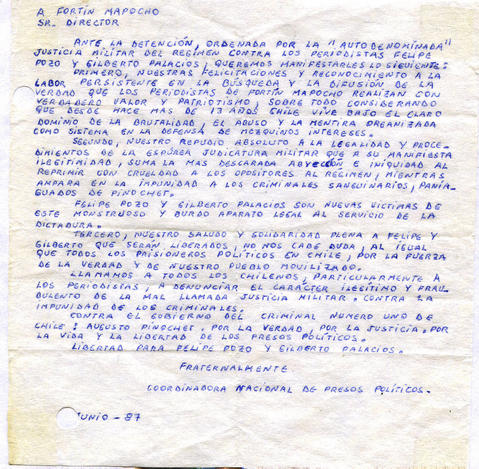 A FORTÍN MAPOCHO
SR. DIRECTOR
ANTE LA DETENCIÓN, ORDENADA POR LA "AUTODENOMINADA"
JUSTICIA MILITAR DEL RÉGIMEN CONTRA LOS PERIODISTAS FELIPE
POZO Y GILBERTO PALACIOS, QUEREMOS MANIFESTARLES LO SIGUIENTE:
PRIMERO, NUESTRAS FELICITACIONES Y RECONOCIMIENTO A LA
LABOR PERSISTENTE EN LA BÚSQUEDA Y LA DIFUSIÓN DE LA
VERDAD QUE LOS PERIODISTAS DE FORTÍN MAPOCHO REALIZAN CON
VERDADERO VALOR Y PATRIOTISMO, SOBRE TODO CONSIDERANDO
QUE DESDE HACE MAS DE 13 AÑOS CHILE VIVE BAJO EL CLARO
DOMINIO DE LA BRUTALIDAD, EL ABUSO Y LA MENTIRA ORGANIZADA
COMO SISTEMA EN LA DEFENSA DE MEZQUINOS INTERESES.
SEGUNDO, NUESTRO REPUDIO ABSOLUTO A LA LEGALIDAD Y PROCE-
DIMIENTOS DE LA ESPÚREA JUDICATURA MILITAR QUE A SU MANIFIESTA
ILEGITIMIDAD, SUMA LA MAS DESCARADA ABYECCIÓN E INIQUIDAD AL
REPRIMIR CON CRUELDAD A LOS OPOSITORES AL RÉGIMEN, MIENTRAS
AMPARA EN LA IMPUNIDAD A LOS CRIMINALES SANGUINARIOS, PANIA-
GUADOS DE PINOCHET.
FELIPE POZO Y GILBERTO PALACIOS SON NUEVAS VICTIMAS DE
ESTE MONSTRUOSO Y BURDO APARATO LEGAL AL SERVICIO DE LA
DICTADURA.
TERCERO, NUESTRO SALUDO Y SOLIDARIDAD PLENA A FELIPE Y
GILBERTO QUE SERÁN LIBERADOS, NO NOS CABE DUDA, AL IGUAL
QUE TODOS LOS PRISIONEROS POLÍTICOS EN CHILE, POR LA FUERZA
DE LA VERDAD Y DE NUESTRO PUEBLO MOVILIZADO.
LLAMAMOS A TODOS LOS CHILENOS, PARTICULARMENTE A
LOS PERIODISTAS, A DENUNCIAR EL CARÁCTER ILEGÍTIMO Y FRAU-
DULENTO DE LA MAL LLAMADA JUSTICIA MILITAR. CONTRA LA
IMPUNIDAD DE LOS CRIMINALES.
CONTRA EL GOBIERNO DEL CRIMINAL NUMERO UNO DE
CHILE: AUGUSTO PINOCHET. POR LA VERDAD, POR LA JUSTICIA. POR
LA VIDA Y LA LIBERTAD DE LOS PRESOS POLÍTICOS.
LIBERTAD PARA FELIPE POZO Y GILBERTO PALACIOS.
FRATERNALMENTE
COORDINADORA NACIONAL DE PRESOS POLÍTICOS.
JUNIO - 87